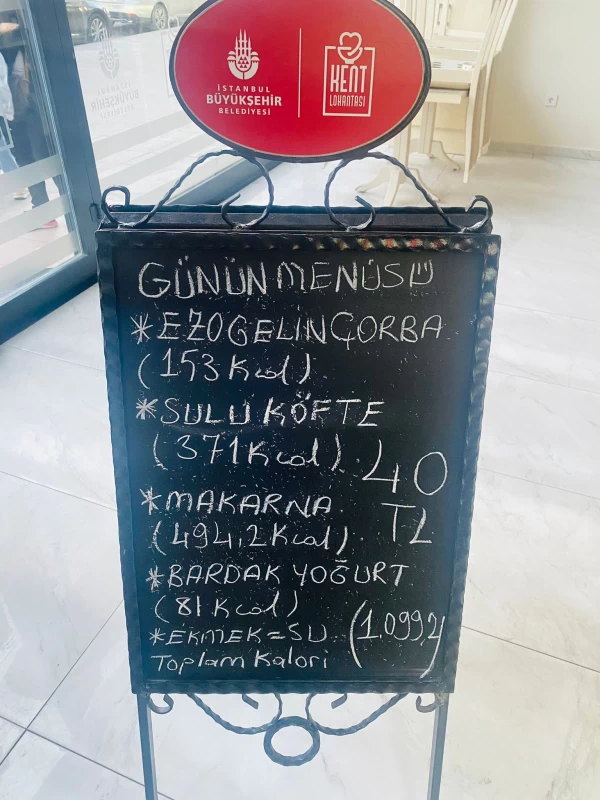 İSTANBUL
BÜYÜKŞEHİR
BELEDİYESİ
KENT
LOKANTASI
GÜNÜN MENÜSÜ
*EZOGELİN ÇORBA
(153 Kcal)
*SULU KÖFTE
(371 Kcal)
40
TL
*MAKARNA
(494,2 Kcal)
*BARDAK YOĞURT
(81 Kcal)
*EKMEK=SU
Toplam Kalori (1.099,2)